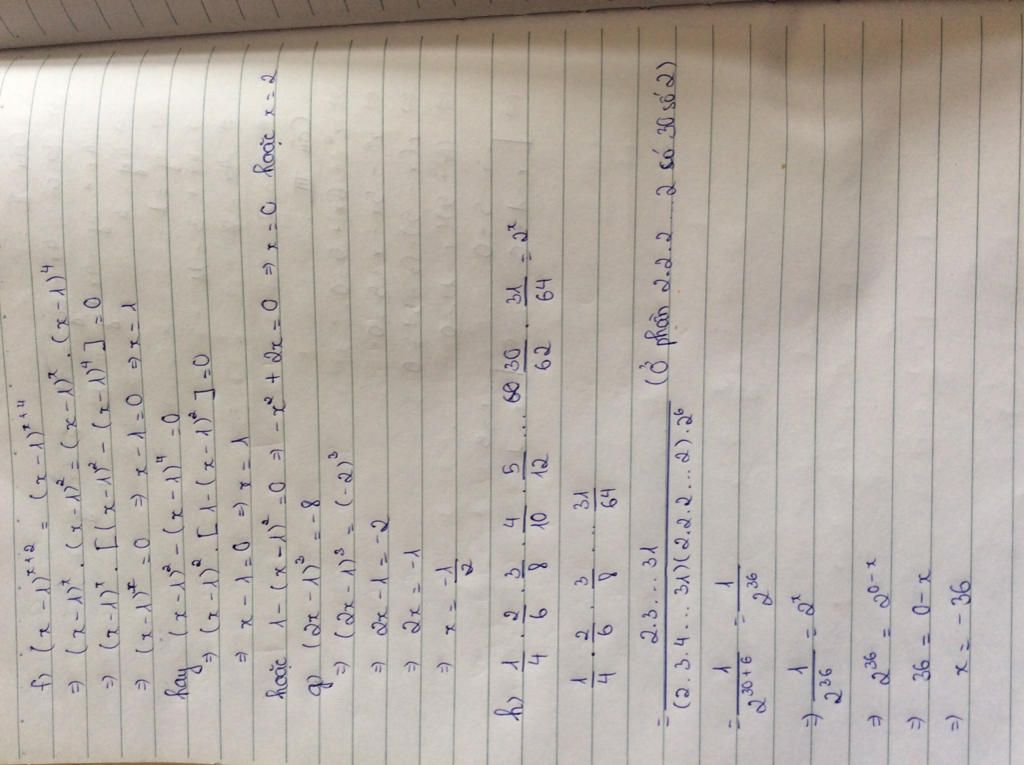 f) (x-1)^{x+2} = (x-1)^{x+4}
=> (x-1)^x . (x-1)^2 = (x-1)^x . (x-1)^4
=> (x-1)^x . [(x-1)^2 - (x-1)^4] = 0
=> (x-1)^x = 0 => x-1 = 0 => x = 1
hay (x-1)^2 - (x-1)^4 = 0
=> (x-1)^2 . [1-(x-1)^2] = 0
=> x-1 = 0 => x = 1
hoặc 1-(x-1)^2 = 0 => -x^2 + 2x = 0 => x = 0 hoặc x = 2
g) (2x-1)^3 = -8
=> (2x-1)^3 = (-2)^3
=> 2x-1 = -2
=> 2x = -1
=> x = -1/2
h) 1/4 . 2/6 . 3/8 . 4/10 . 5/12 ... 30/62 . 31/64 = 2^x
1/4 . 2/6 . 3/8 . ... 31/64
= 2.3....31 / (2.3.4...31)(2.2.2...2).2^6 (Ở phần 2.2.2....2 có 30 số 2)
= 1/2^{30+6} = 1/2^{36}
=> 1/2^{36} = 2^x
=> 2^{36} = 2^{0-x}
=> 36 = 0-x
=> x = -36